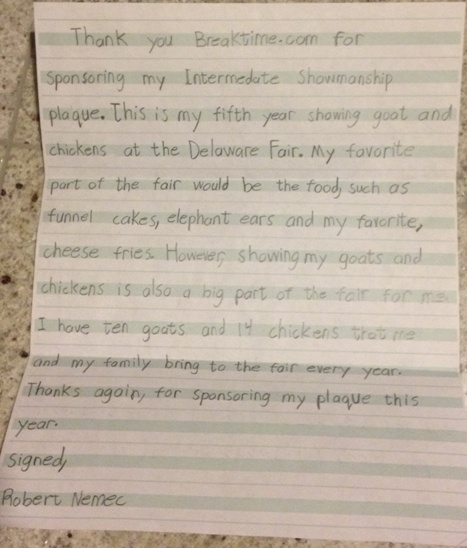 Thank you Breaktime.com for
sponsoring my Intermedate Showmanship
plaque. This is my fifth year showing goat and
chickens at the Delaware Fair. My favorite
part of the fair would be the food, such as
funnel cakes, elephant ears and my favorite,
cheese fries. However, showing my goats and
chickens is also a big part of the fair for me
I have ten goats and 14 chickens that me
and my family bring to the fair every year.
Thanks again, for sponsoring my plaque this
year.
signed,
Robert Nemec